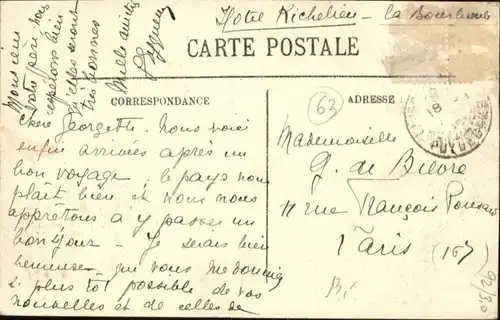 Hotel Richelieu - La Bourboule
CARTE POSTALE
CORRESPONDANCE
ADRESSE
63
Chère Georgette. Nous voici
enfin arrivées après un
bon voyage. le pays nous
plaît bien et nous nous
apprêtons à y passer un
bon séjour - Je serais bien
heureuse que vous me donniez
le plus tôt possible de vos
nouvelles et de celles de
Monsieur
votre père dont
espérons bien
seront
très bonnes
Mille amitiés
Mademoiselle
G. de Bièvre
11 rue François Ponsard
Paris (16e)
PUY DE DOME
18
92/30